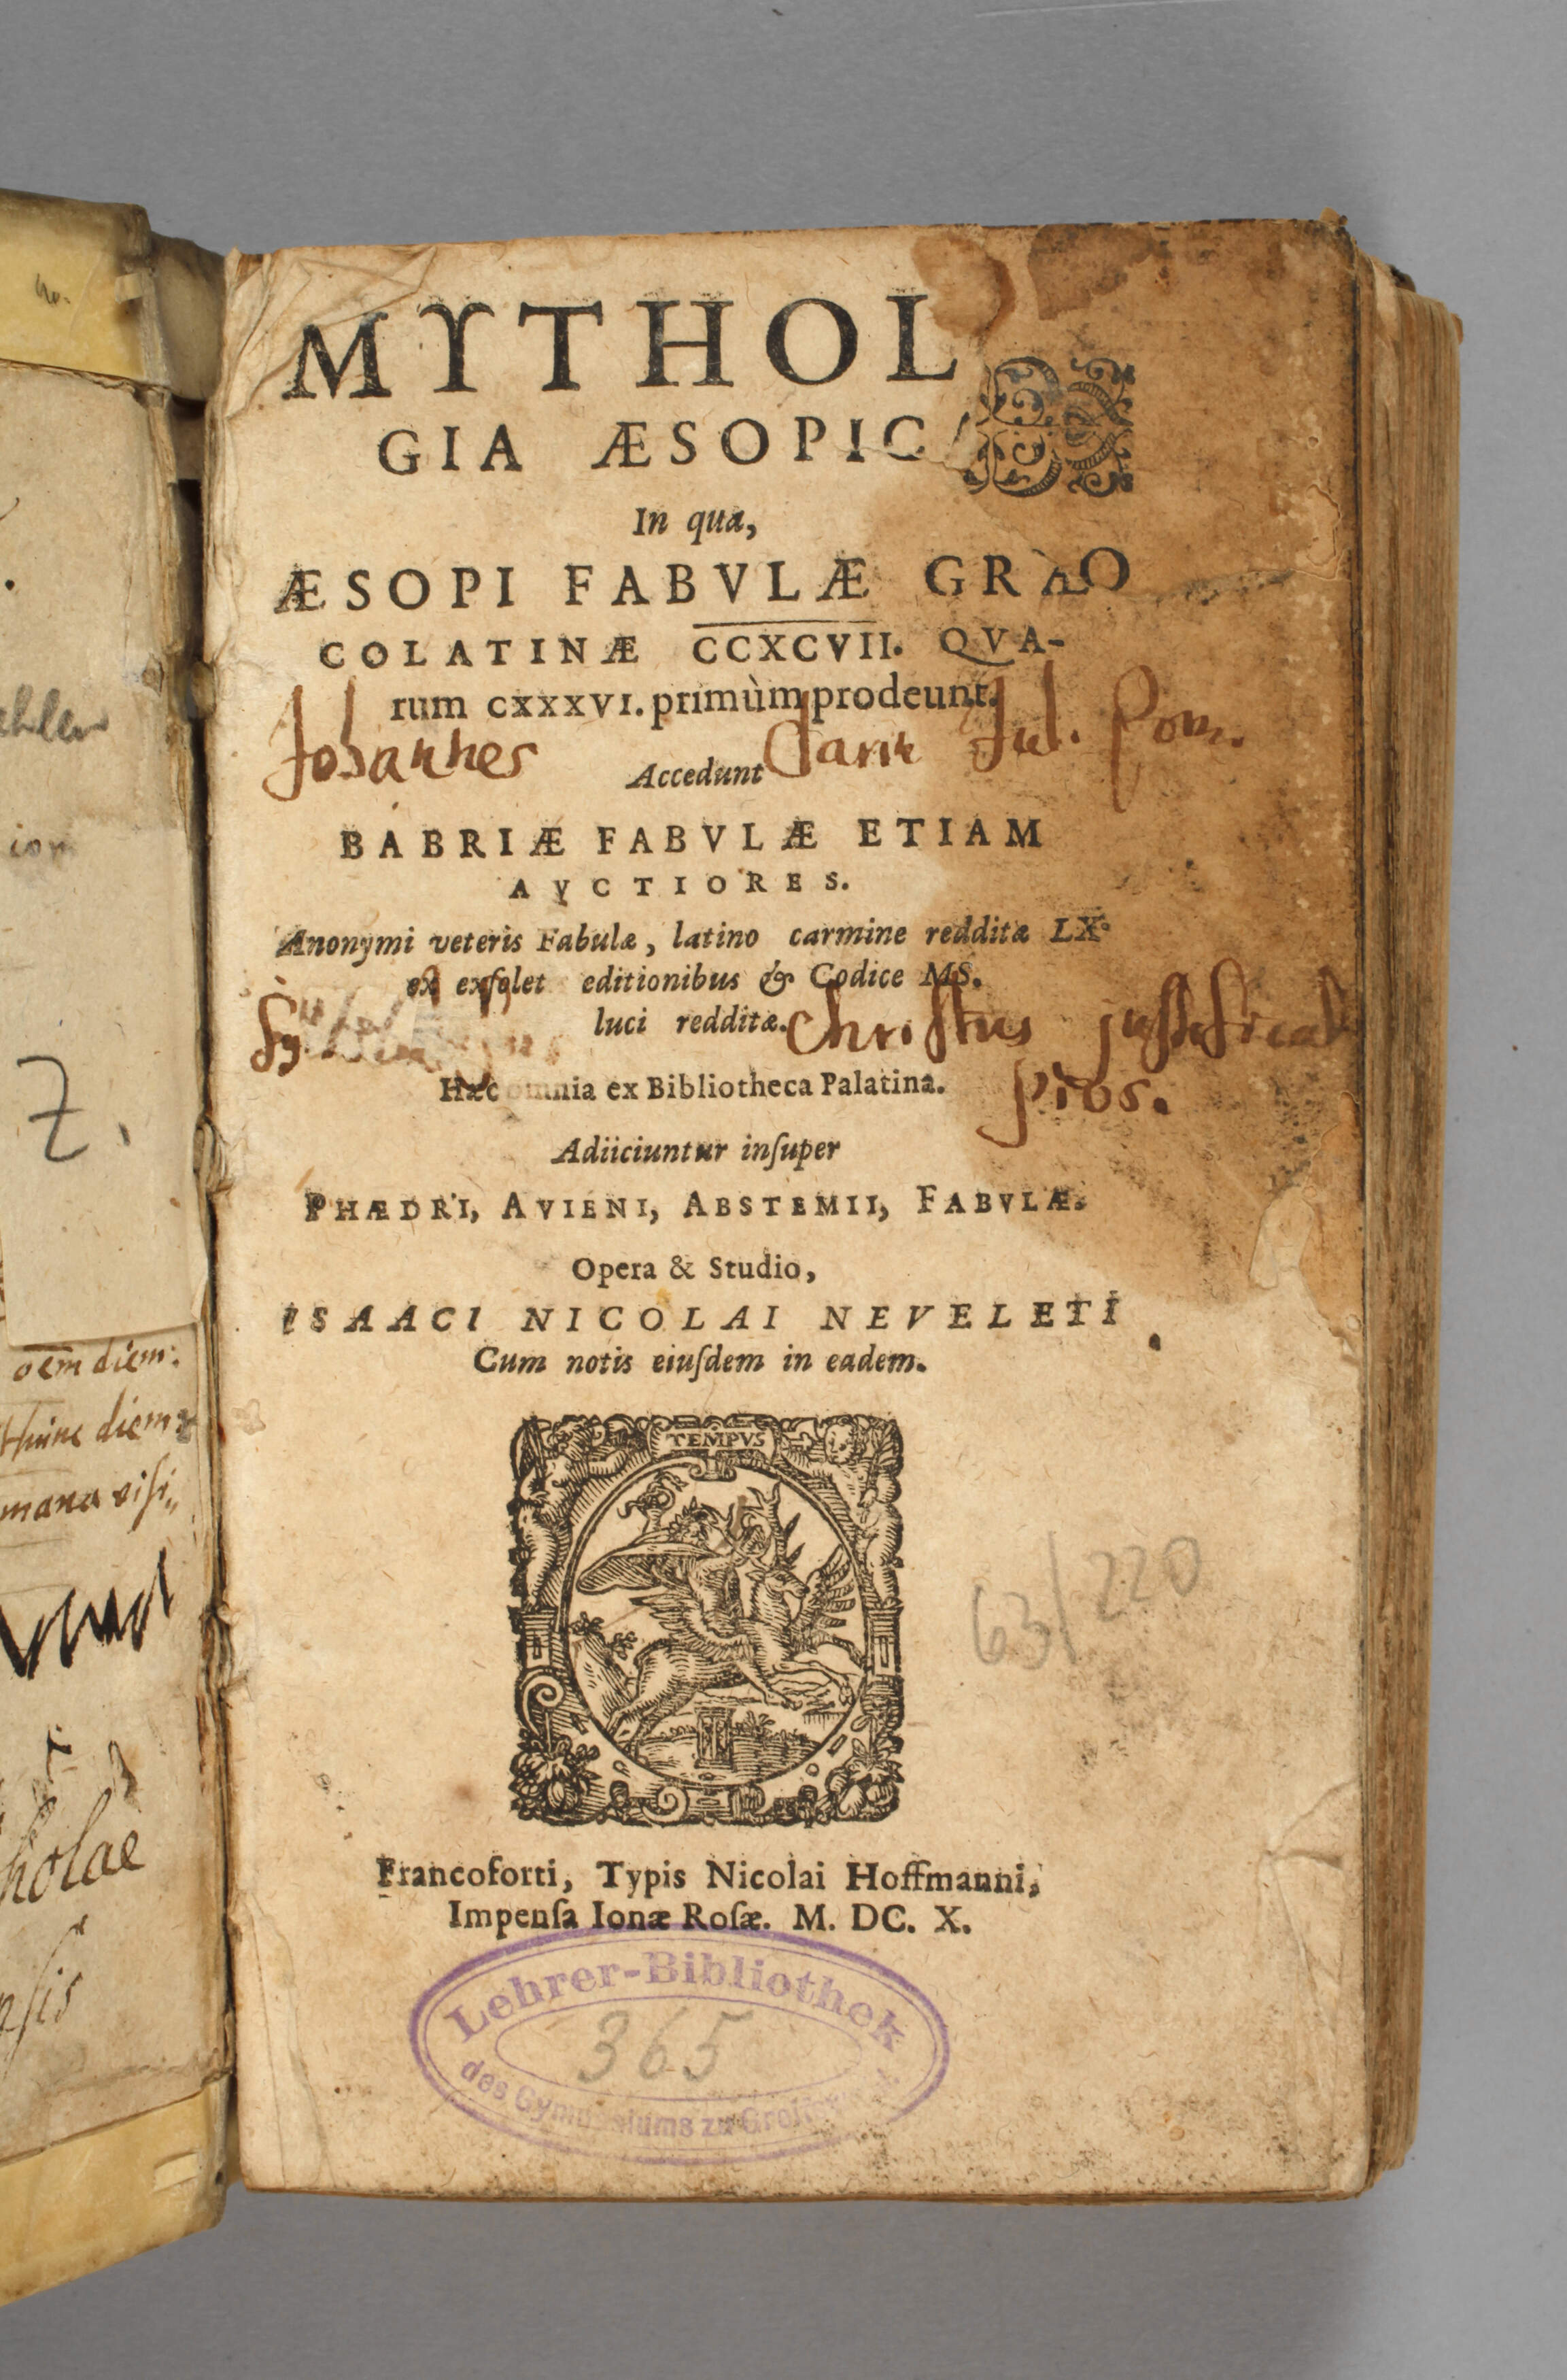 MYTHOL
GIA ÆSOPIC
In qua,
ÆSOPI FABVLÆ GRÆO
COLATINÆ CCXCVII. QVA-
rum CXXXVI. primùm prodeunt.
Johannes
Jul. Pom.
Accedunt
BABRIÆ FABVLÆ ETIAM
AVCTIORES.
Anonymi veteris Fabulæ, latino carmine redditæ LX.
ex exſolet editionibus & Codice MS.
luci redditæ.
Christus justificat
pios.
Hæc omnia ex Bibliotheca Palatina.
Adiiciuntur inſuper
PHÆDRI, AVIENI, ABSTEMII, FABVLÆ.
Opera & Studio,
ISAACI NICOLAI NEVELETI
Cum notis eiuſdem in eadem.
TEMPVS
63/220
Francoforti, Typis Nicolai Hoffmanni,
Impenſa Ionæ Roſæ. M. DC. X.
Lehrer-Bibliothek
365
des Gymnasiums zu
Z.
diem:
diem
holae